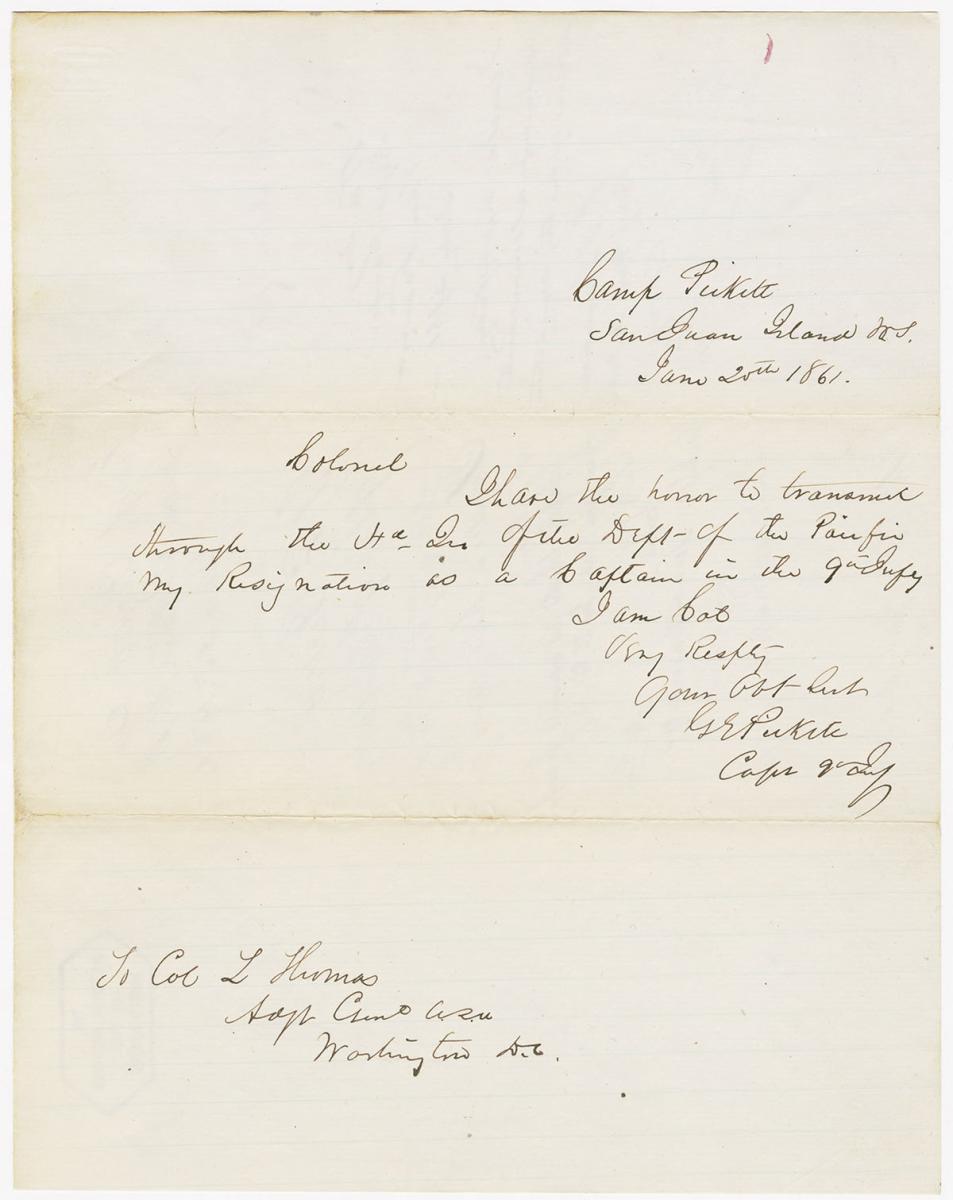 Camp Pickett
San Juan Island W.T.
June 20th 1861.
Colonel
I have the honor to transmit
through the Hd Qrs of the Dept of the Pacific
my Resignation as a Captain in the 9th Infy
I am Col
Very Respfly
Your Obt Svt
G E Pickett
Capt 9th Inf
To Col L Thomas
Adjt Genl U.S.A
Washington D.C.